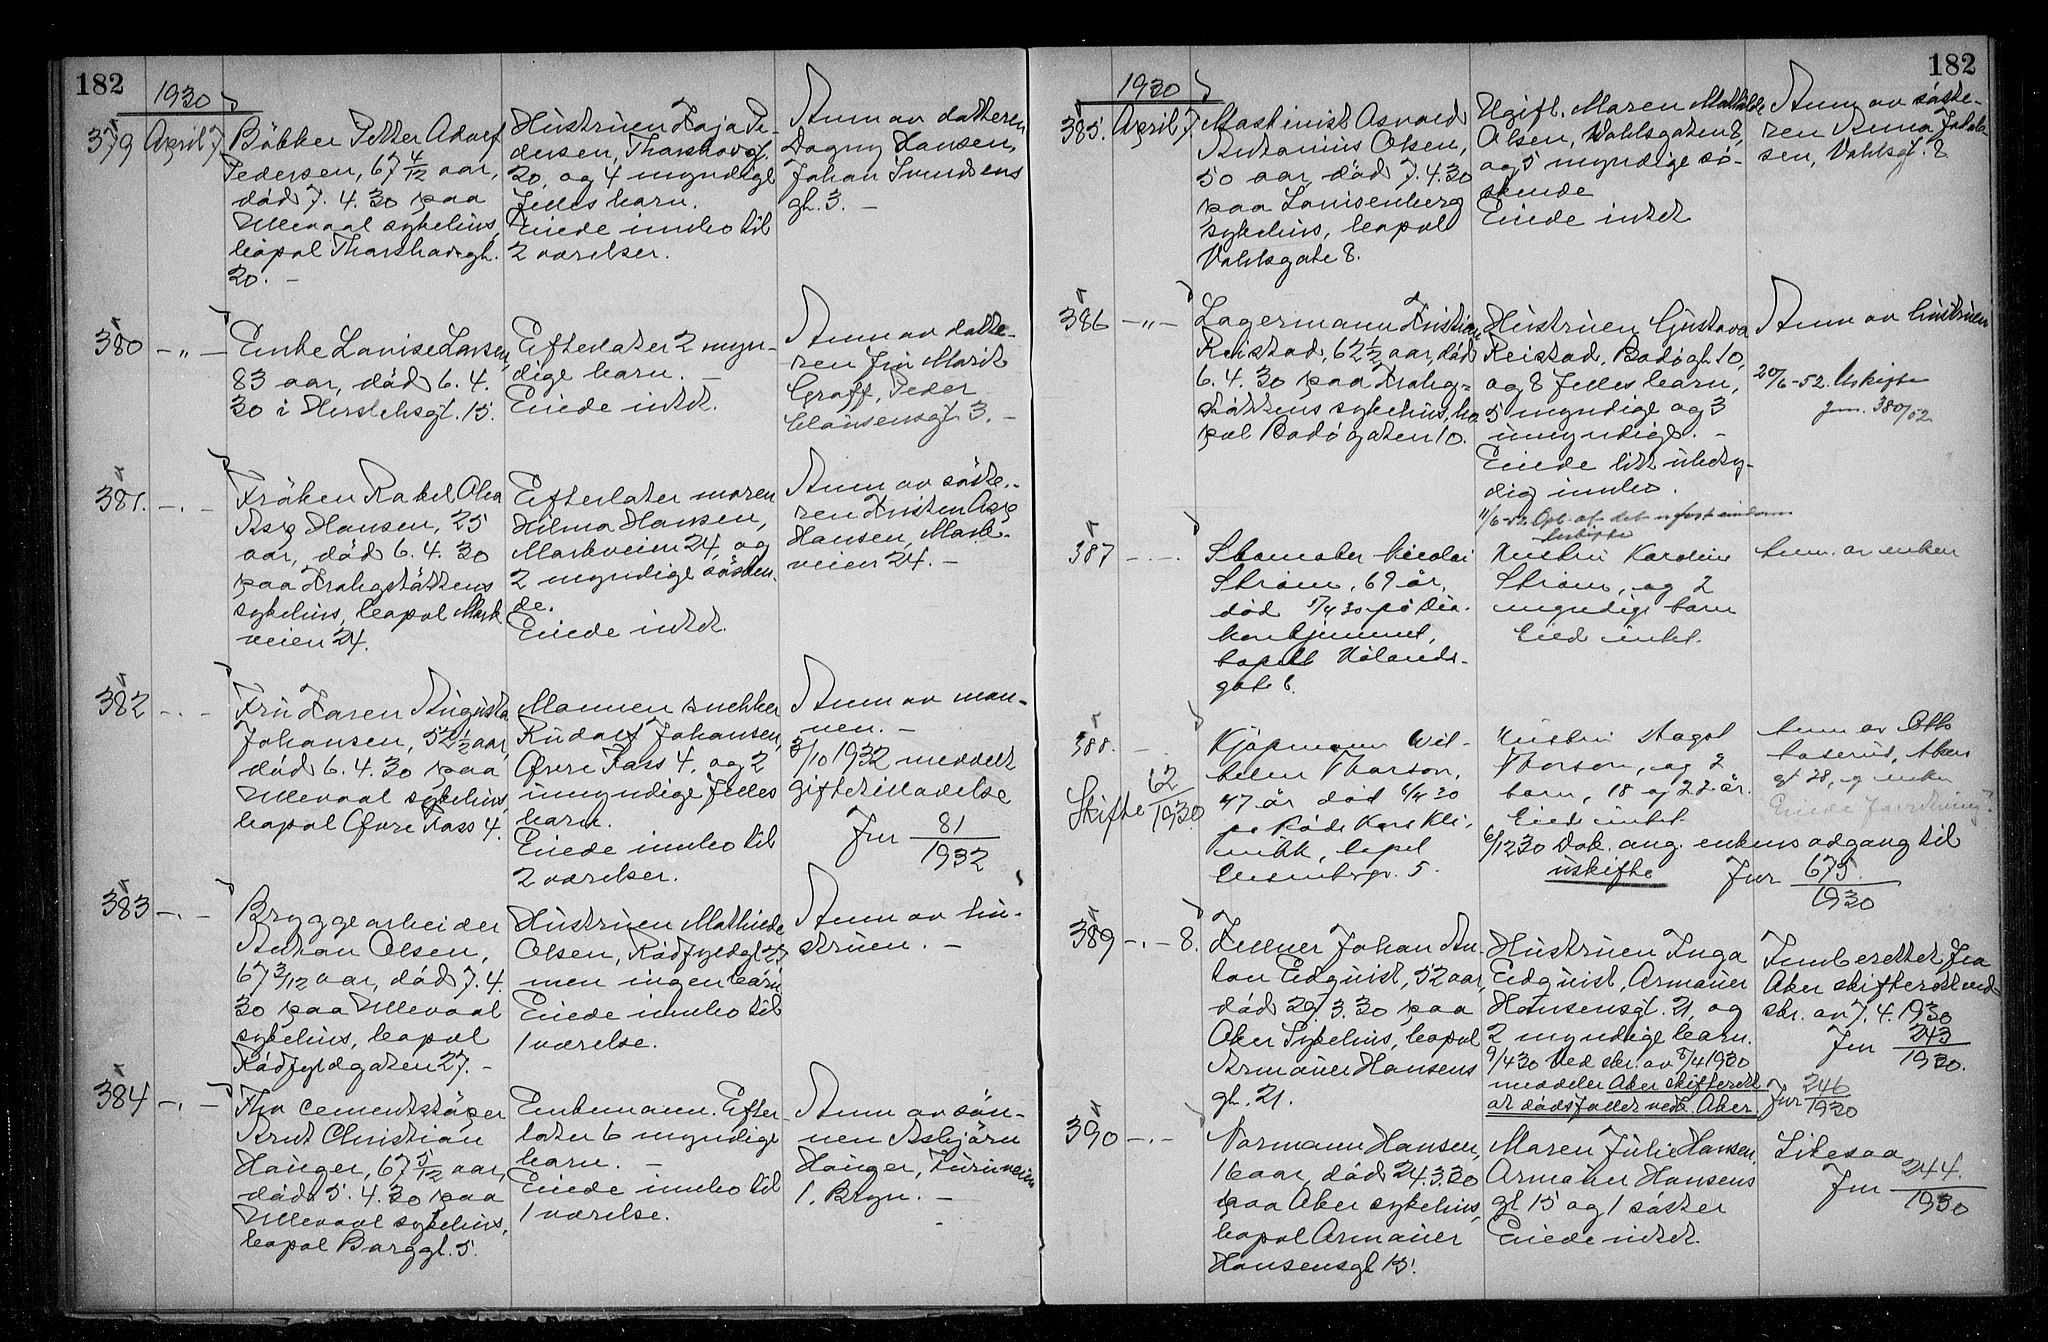 182
1930
379 April 7
Bökker Petter Adolf
Pedersen, 67 4/12 aar,
död 7. 4. 30 paa
Ullevaal sykehus,
bopæl Thorshavgt.
20. –
Hustruen Kaja Pe-
dersen, Thorshavgt.
20, og 4 myndige
felles barn.
Eiede innbo til
2 værelser.
Anm av datteren
Dagny Hansen,
Johan Svendsens
gt. 3. –
380 –„–
Enke Lovise Larsen,
83 aar, död 6. 4.
30 i Herslebsgt. 15.
Efterlater 2 myn-
dige barn. –
Eiede intet.
Anm av datte-
ren Marit
Graff, Peder
Clausensgt. 3. –
381. –„–
Fröken Rakel Olea
Aase Hansen, 25
aar, död 6. 4. 30
paa Krohgstöttens
sykehus, bopæl Mark
veien 24.
Efterlater moren
Hilma Hansen,
Markveien 24, og
2 myndige sösken-
de.
Eiede intet.
Anm av söste-
ren Kirsten Aase
Hansen, Mark-
veien 24. –
382 –„–
Fru Karen Augusta
Johansen, 52 1/2 aar,
död 6. 4. 30 paa
Ullevaal sykehus,
bopæl Øvre Foss 4.
Mannen snekker
Rudolf Johansen,
Øvre Foss 4, og 2
umyndige felles
barn.
Eiede innbo til
2 værelser.
Anm av man-
nen. –
3/10 1932 meddelt
giftetilladelse
Jnr 81/1932
383 –„–
Bryggearbeider
Anton Olsen,
67 3/12 aar, död 7. 4.
30 paa Ullevaal
sykehus, bopæl
Rödfyldgaten 27. –
Hustruen Mathilde
Olsen, Rödfyldgt 27
men ingen barn
Eiede innbo til
1 værelse.
Anm av hu-
struen. –
384 –„–
Fhv cementstöper
Arnt Christian
Hauger, 67 5/12 aar,
död 5. 4. 30 paa
Ullevaal sykehus,
bopæl Borggt. 5.
Enkemann. Efter
later 6 myndige
barn. –
Eiede innbo til
1 værelse.
Anm av sön-
nen Asbjörn
Hauger,
1, Bryn. –
182
1930
385. April 7
Maskinist Asvald
Antonius Olsen,
50 aar, död 7. 4. 30
paa Lovisenberg
sykehus, bopæl
Vahlsgate 8.
Ugift. Maren Mathilde
Olsen, Wahlsgaten 8,
og 5 myndige sö-
skende
Eiede intet
Anm av söste-
ren Anna Jakob-
sen, Vahlsgt. 8
386 –„–
Lagermann Kristian
Reistad, 62 1/2 aar, död
6. 4. 30 paa Krohg-
stöttens sykehus, bo
pæl Bodögaten 10.
Hustruen Gustava
Reistad, Bodögt. 10,
og 8 felles barn,
5 myndige og 3
umyndige. –
Eiede litt ubety-
dig innbo.
11/6-52 Opl. at det
Anm av hustruen
20/6-52. Uskifte
Jnr. 380/52
387 –„–
Skomaker Nicolai
Ström, 69 år,
død 5/4 30 på Dia-
konhjemmet,
bopæl Hølands-
gate 6.
Hustru Karoline
Strøm, og 2
myndige barn
Eied intet.
Anm. av enken
388. –„–
Skifte 62/1930
Kjøpmann Wil-
helm Thorson,
47 år død 6/4 30
på Røde Kors Kli-
nikk, bopel
Hustru Aagot
Thorson, og 2
barn, 18 og 22 år.
Eied intet
6/12 30 Dok. ang. enkens adgang til
uskifte Jnr 675/1930
Anm av Otto
gt 28, og enken
Eiede forretning?
389 –„– 8.
Kelner Johan An-
ton Edquist, 52 aar,
död 29. 3. 30 paa
Aker Sykehus, bopæl
Armauer Hansens
gt. 21.
Hustruen Inga
Edquist, Armauer
Hansensgt. 21, og
2 myndige barn.
9/4 30 Ved skr. av 8/4 1930
meddeler Aker skifterett
at dödsfallet vedk. Aker. Jnr 246/1930
Innberettet fra
Aker skifterett ved
skr. av 7. 4. 1930
Jnr 243/1930.
390 –„–
Normann Hansen,
16 aar, död 24. 3. 30
paa Aker sykehus,
bopæl Armauer
Hansensgt 15.
Maren Julie Hansen,
Armauer Hansens
gt 15 og 1 söster
Eiede intet.
Likesaa
Jnr 244/1930